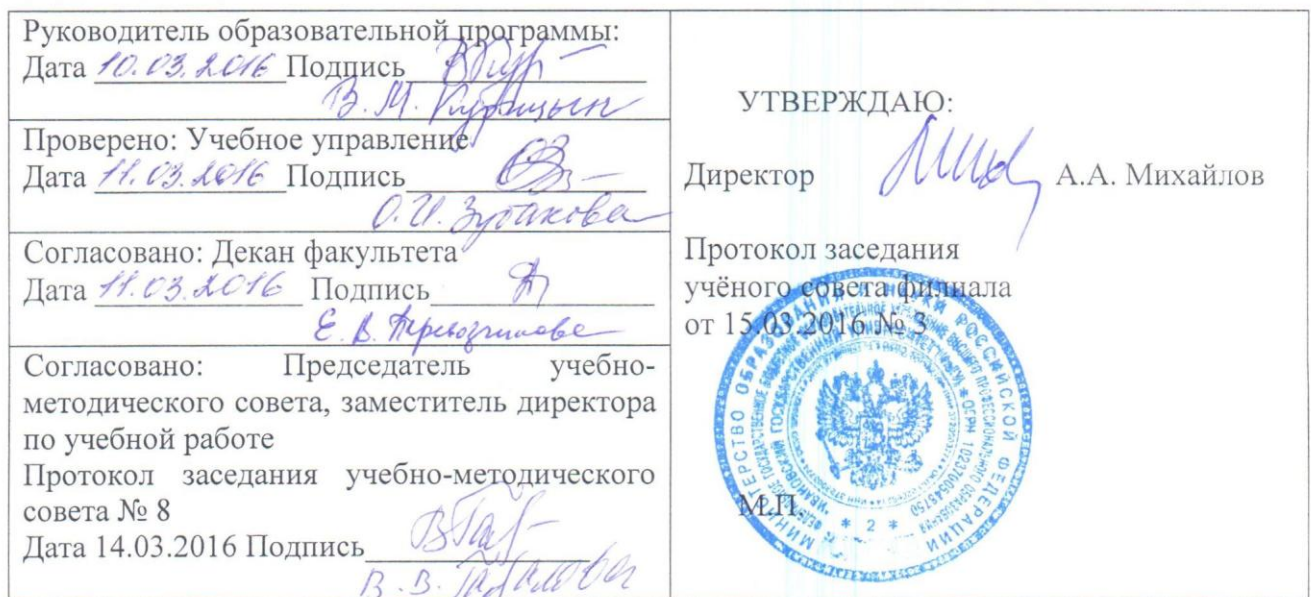 Руководитель образовательной программы:
Дата 10.03.2016 Подпись
В. М.
Проверено: Учебное управление
Дата 11.03.2016 Подпись
О.И. Зубакова
Согласовано: Декан факультета
Дата 11.03.2016 Подпись
Е. В.
Согласовано: Председатель учебно-
методического совета, заместитель директора
по учебной работе
Протокол заседания учебно-методического
совета № 8
Дата 14.03.2016 Подпись
В. В.
УТВЕРЖДАЮ:
Директор А.А. Михайлов
Протокол заседания
учёного совета филиала
от 15.03.2016 № 3
М.П.
МИНИСТЕРСТВО ОБРАЗОВАНИЯ И НАУКИ РОССИЙСКОЙ ФЕДЕРАЦИИ
* 2 *